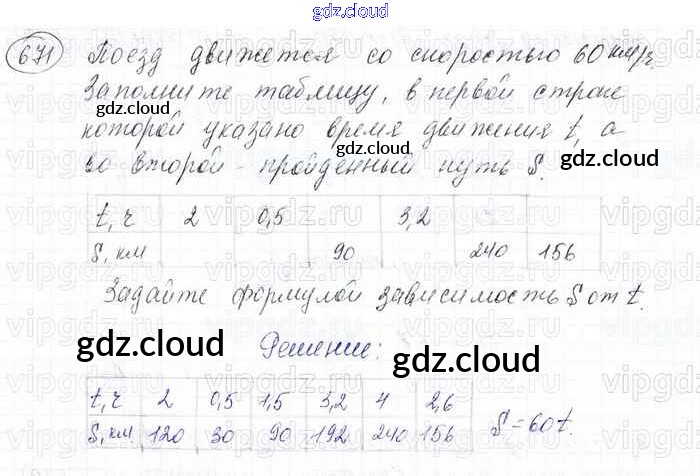 gdz.cloud
671 Поезд движется со скоростью 60 км/ч.
Заполните таблицу, в первой строке
gdz.cloud
которой указано время движения t, а
gdz.cloud
во второй - пройденный путь S.
gdz.cloud
t, ч 2 0,5 3,2
S, км 90 240 156
Задайте формулой зависимость S от t.
gdz.cloud Решение: gdz.cloud
t, ч 2 0,5 1,5 3,2 4 2,6
S, км 120 30 90 192 240 156 S=60t.